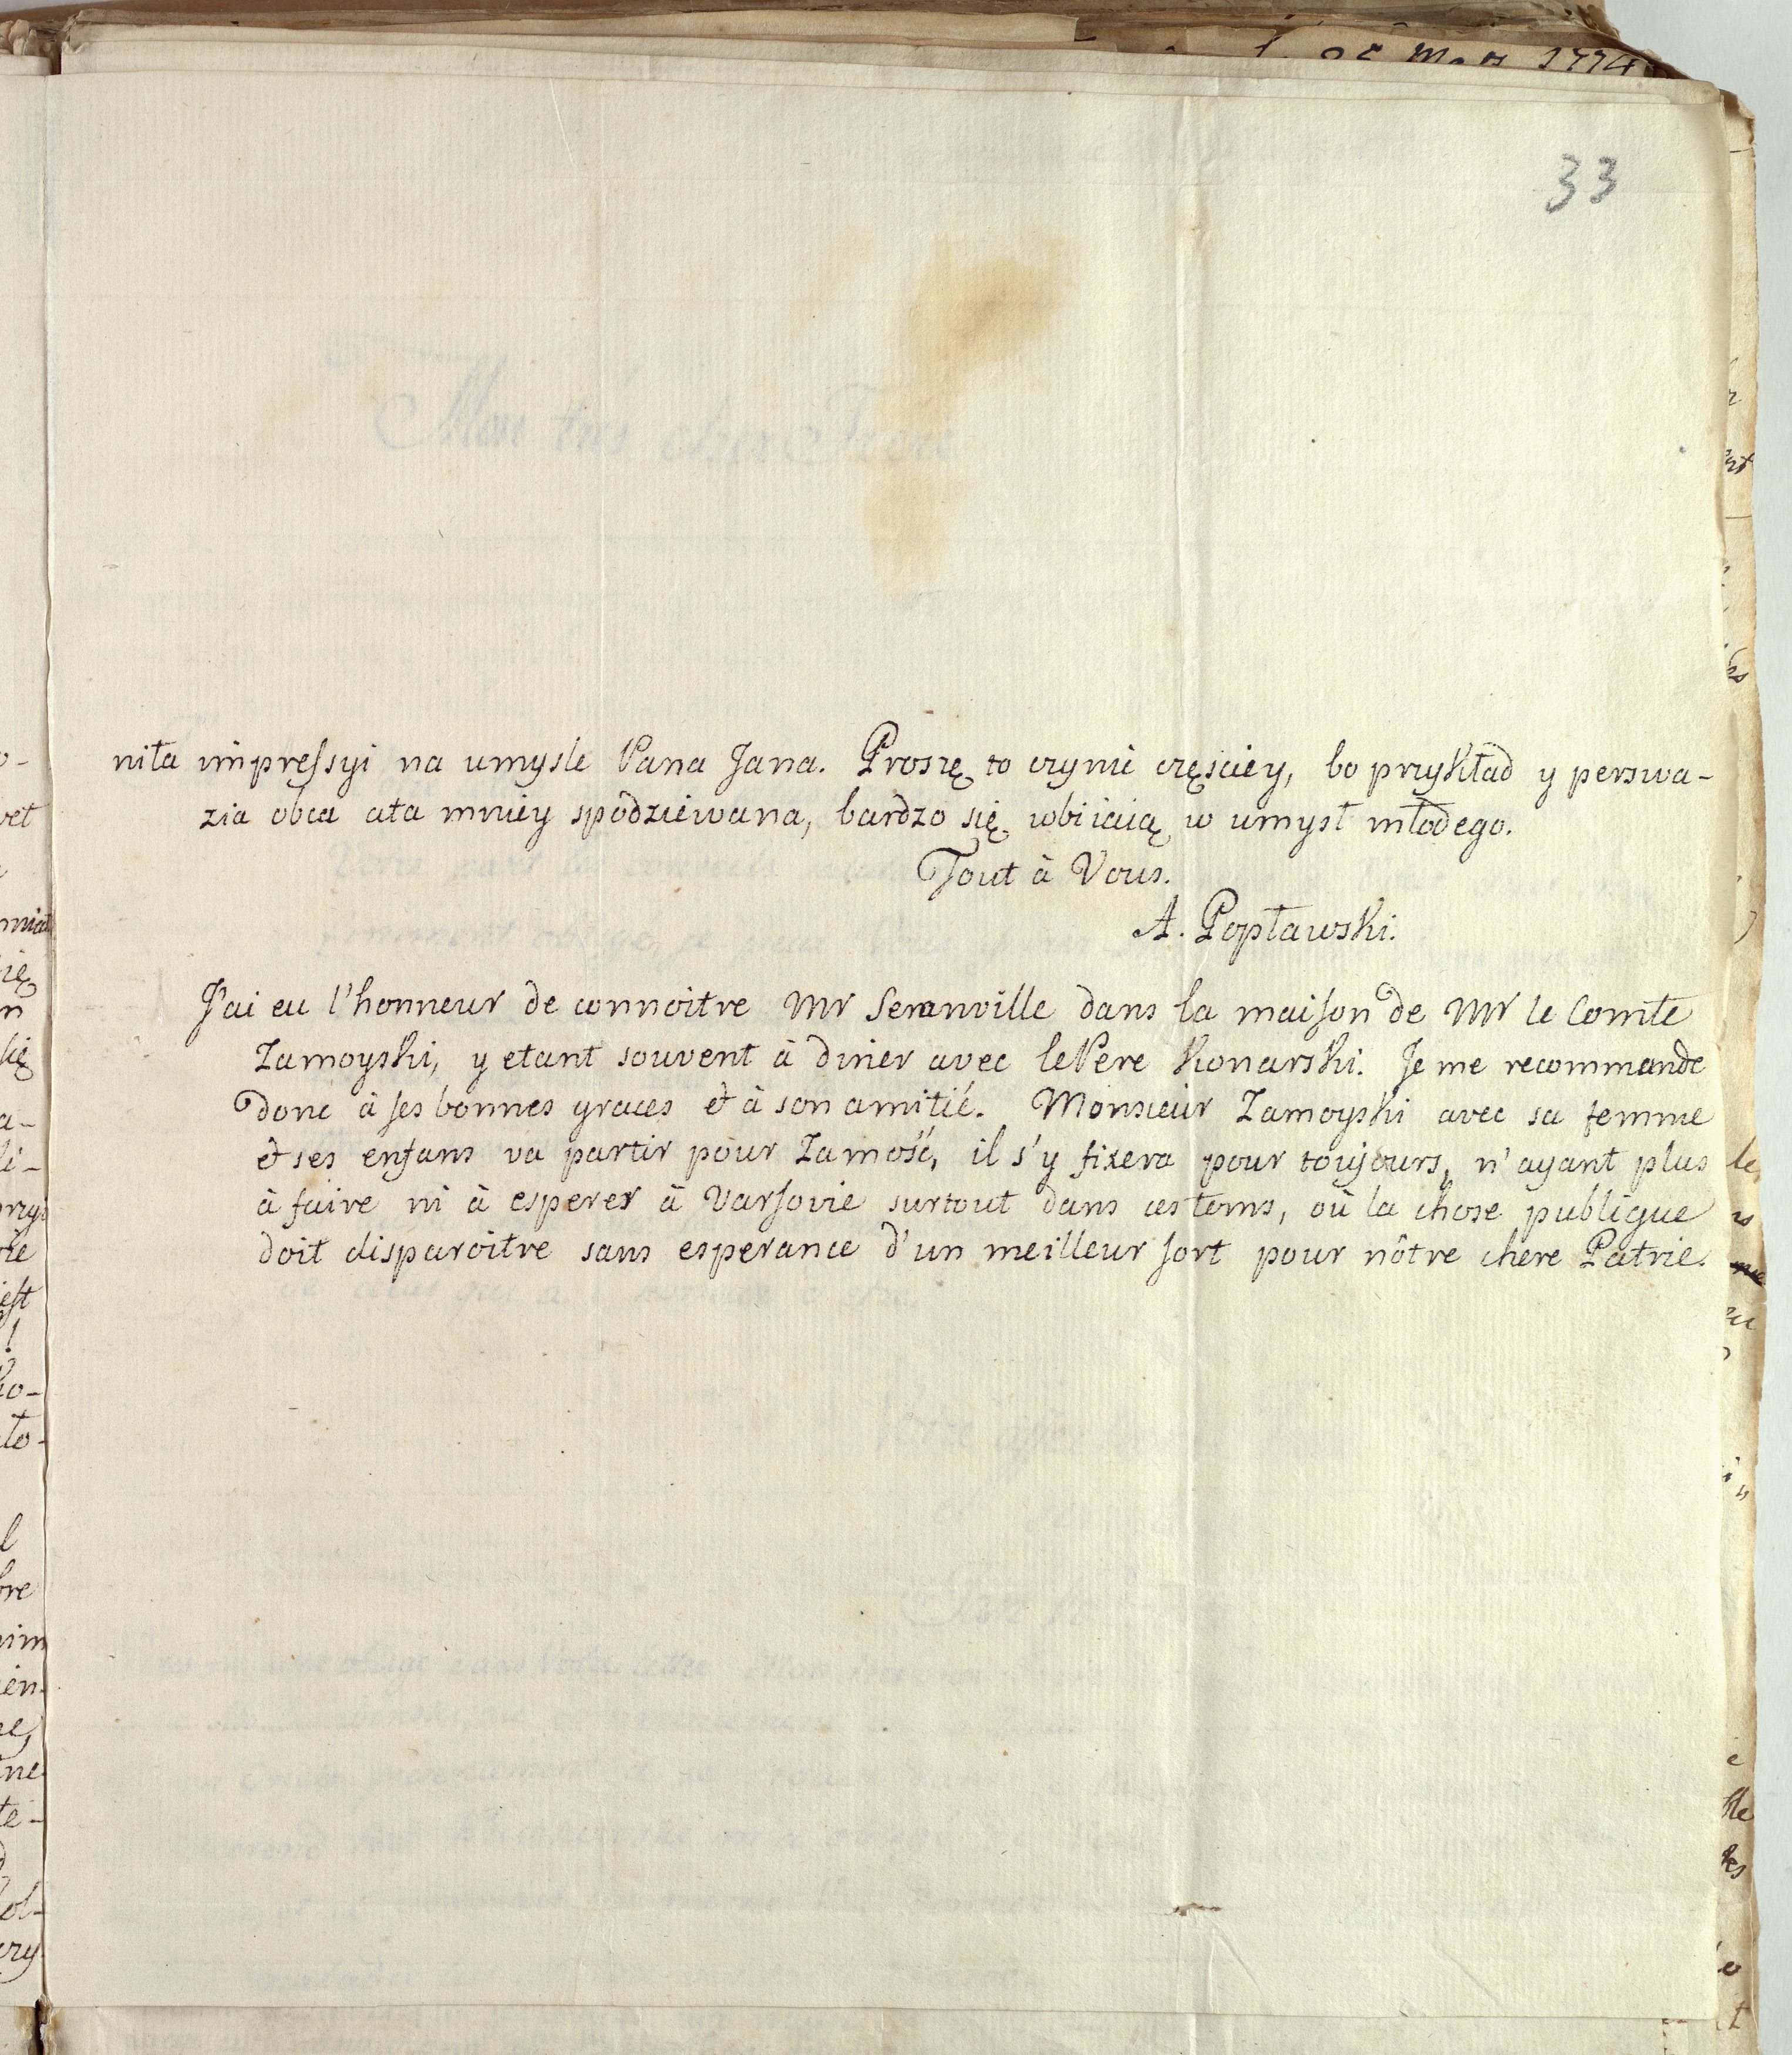 33
niła impressyi na umysle Pana Jana. Proszę to czynić częściey, bo przykład y perswa-
zia obca ała mniey spodziewana, bardzo się wbiiaią w umysł młodego.
Tout à Vous.
A. Popławski.
J'ai eu l'honneur de connoitre Mr Seranville dans la maison de Mr le Comte
Zamoyski, y etant souvent à diner avec le Pere Konarski. Je me recommande
donc à ses bonnes graces et à son amitié. Monsieur Zamoyski avec sa femme
et ses enfans va partir pour Zamość, il s'y fixera pour toujours, n'ayant plus
à faire ni à esperer à Varsovie surtout dans ces tems, où la chose publique
doit disparoitre sans esperance d'un meilleur sort pour nôtre chere Patrie.